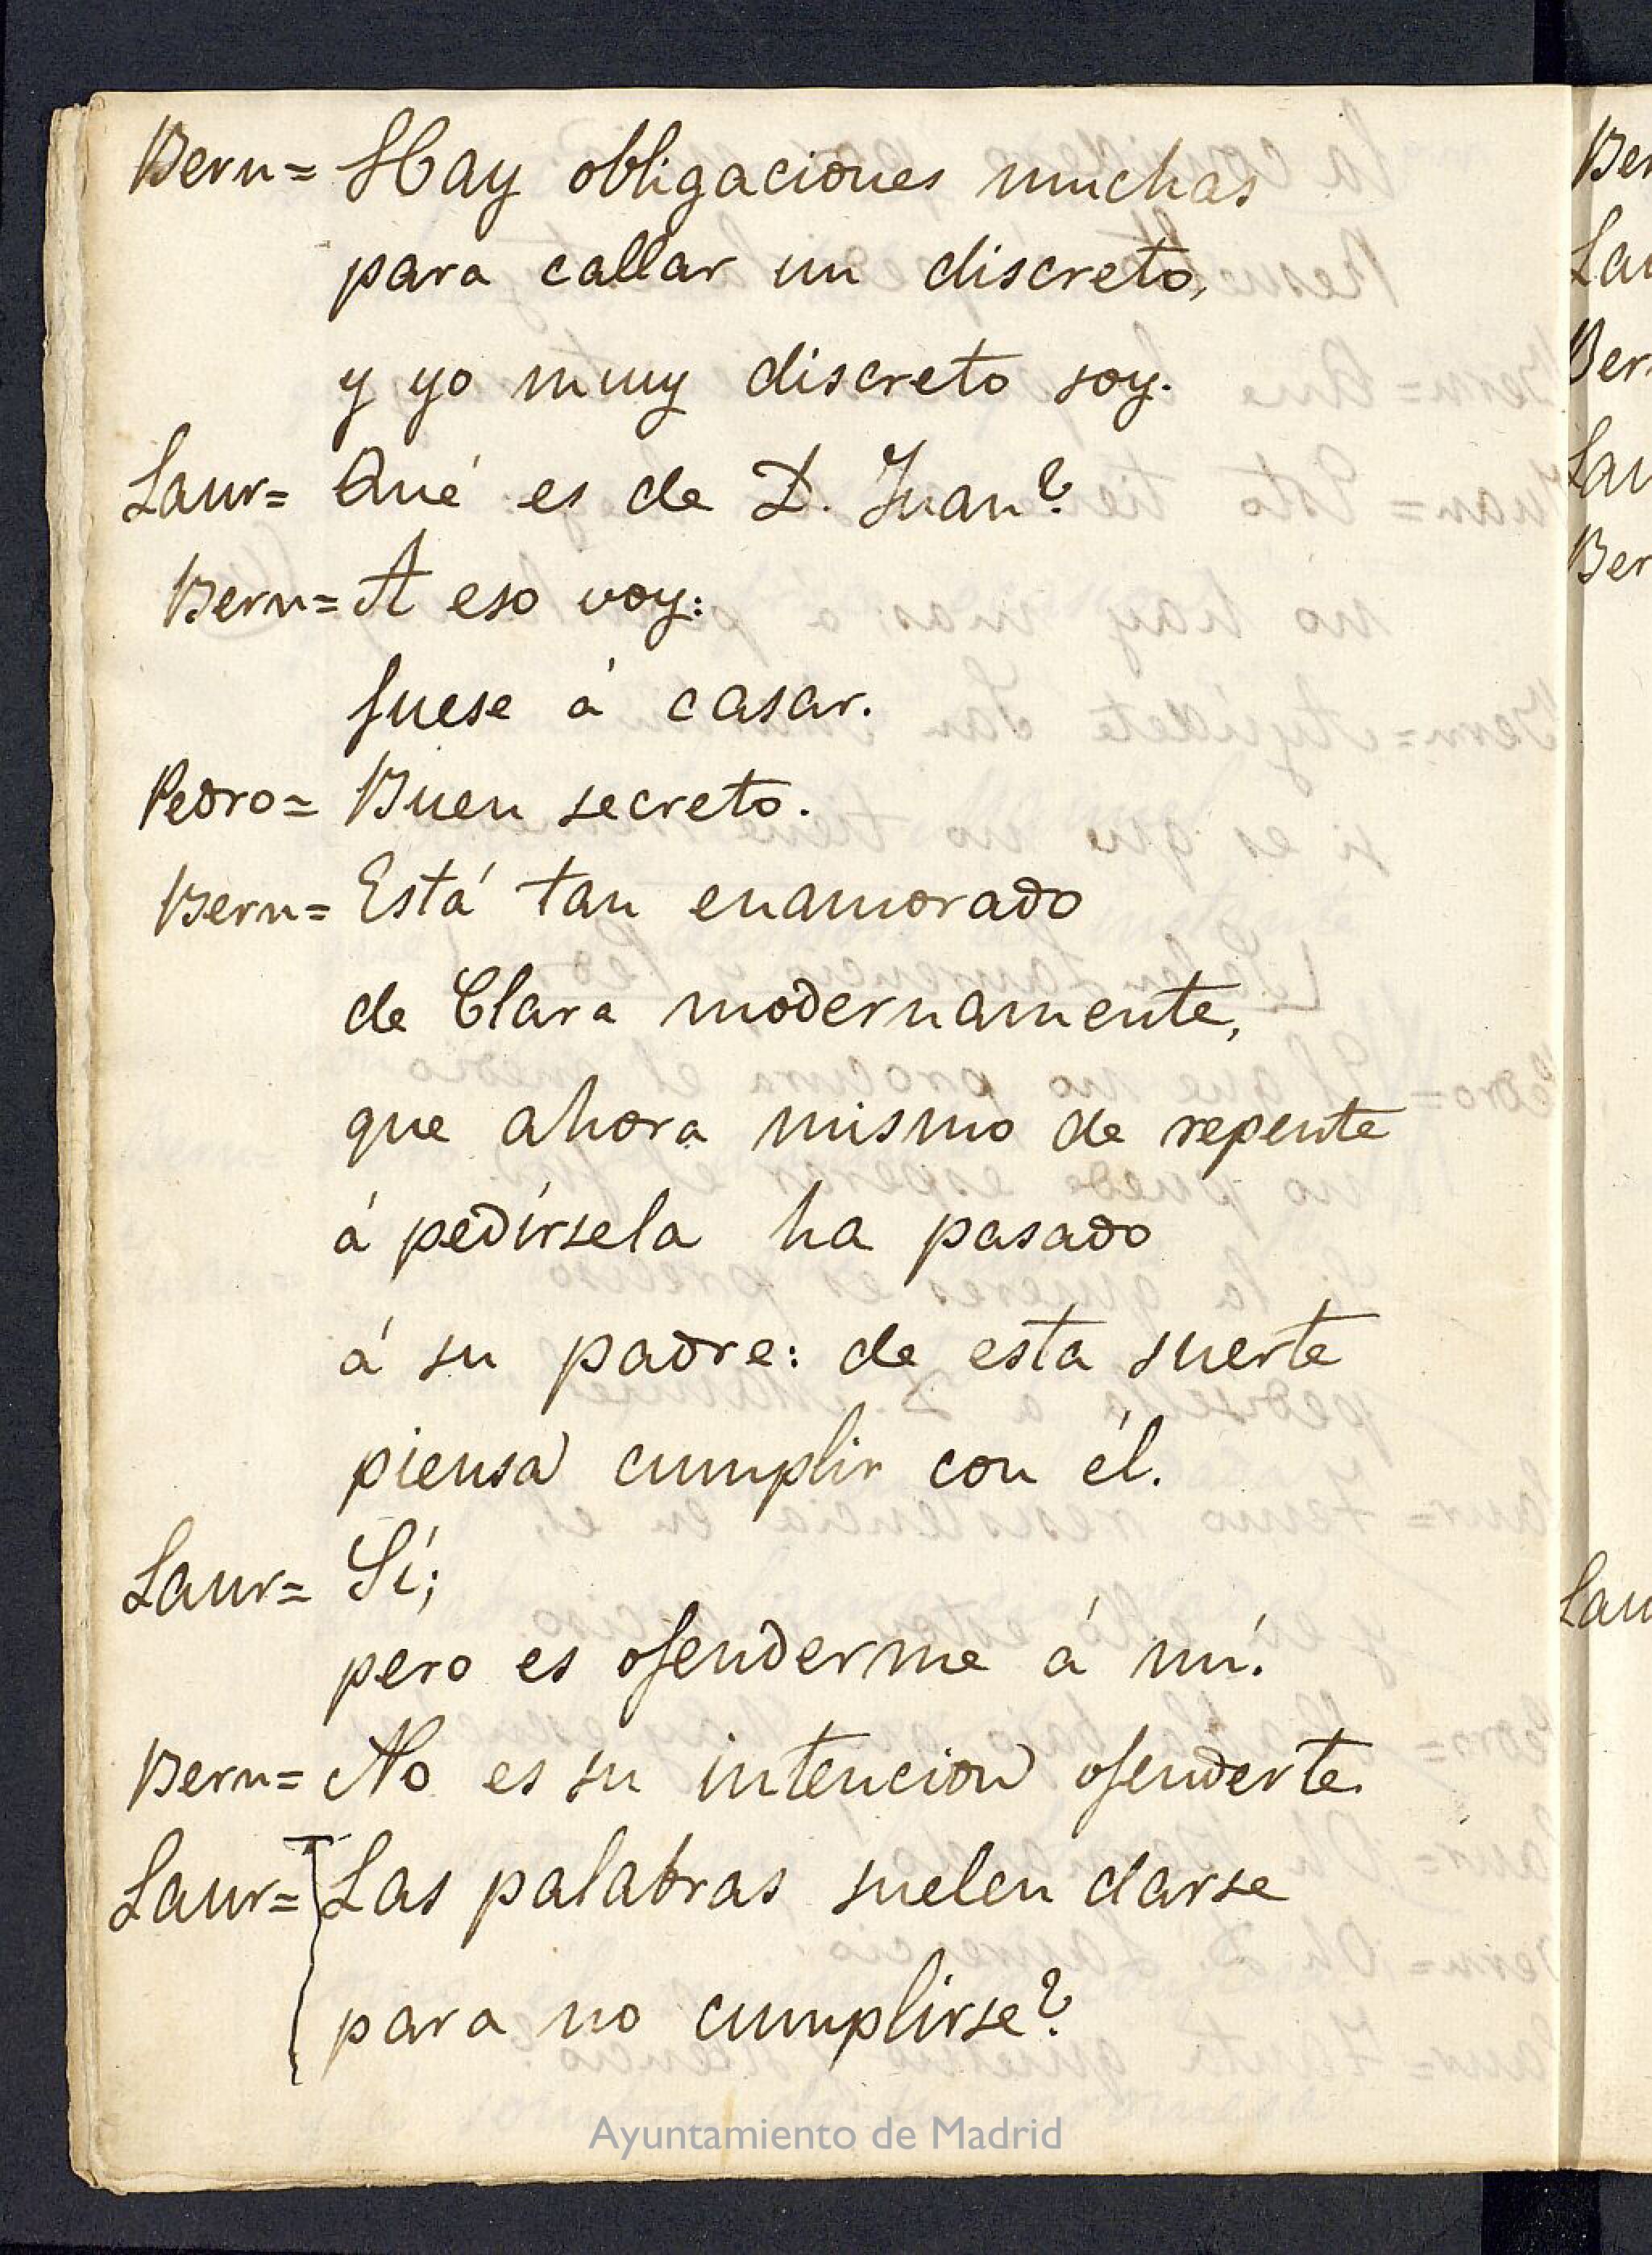 Bern= Hay obligaciones muchas
para callar un discreto,
y yo muy discreto soy.
Laur= Qué es de D. Juan?
Bern= A eso voy:
fuese á casar.
Pedro= Buen secreto.
Bern= Está tan enamorado
de Clara modernamente,
que ahora mismo de repente
á pedírsela ha pasado
á su padre: de esta suerte
piensa cumplir con él.
Laur= Sí;
pero es ofenderme á mí.
Bern= No es su intencion ofenderte.
Laur= Las palabras suelen darse
para no cumplirse?
Ayuntamiento de Madrid